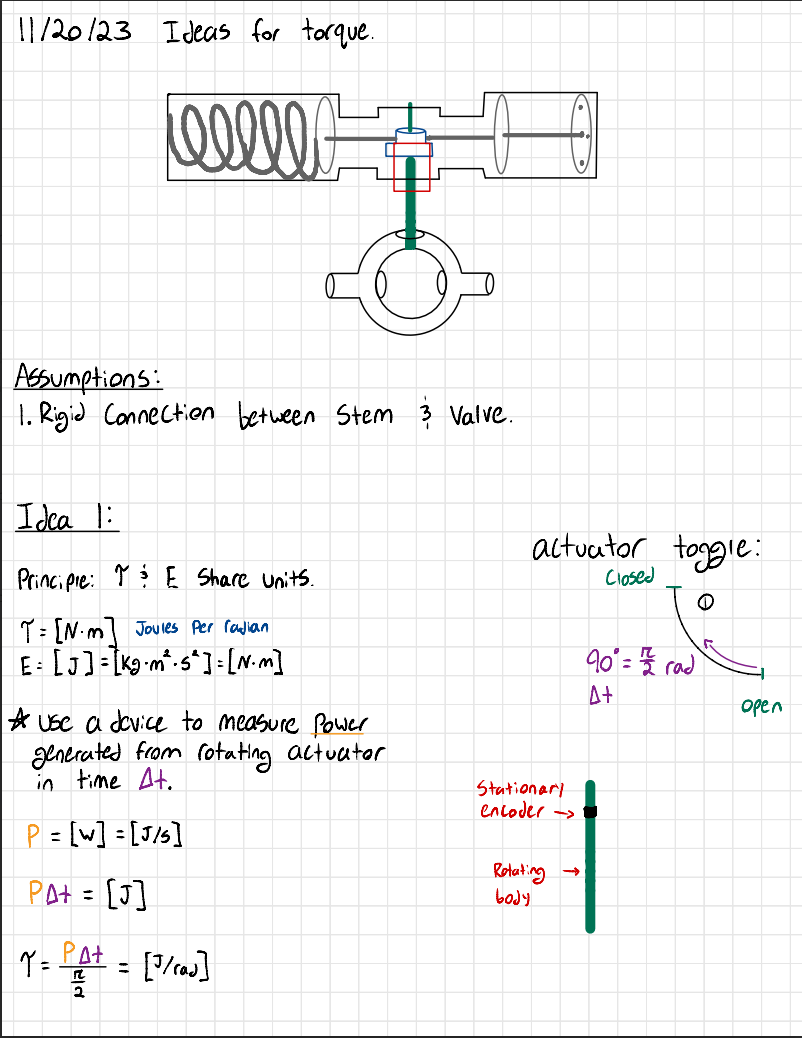 11/20/23 Ideas for torque.
Assumptions:
1. Rigid Connection between Stem & Valve.
Idea 1:
Principle: τ & E Share units.
τ = [N·m] Joules Per radian
E = [J] = [kg·m²·s²] = [N·m]
* Use a device to measure Power
generated from rotating actuator
in time Δt.
P = [W] = [J/s]
PΔt = [J]
τ = PΔt / π/2 = [J/rad]
actuator toggle:
Closed
①
90° = π/2 rad
Δt
open
Stationary
encoder →
Rotating →
body